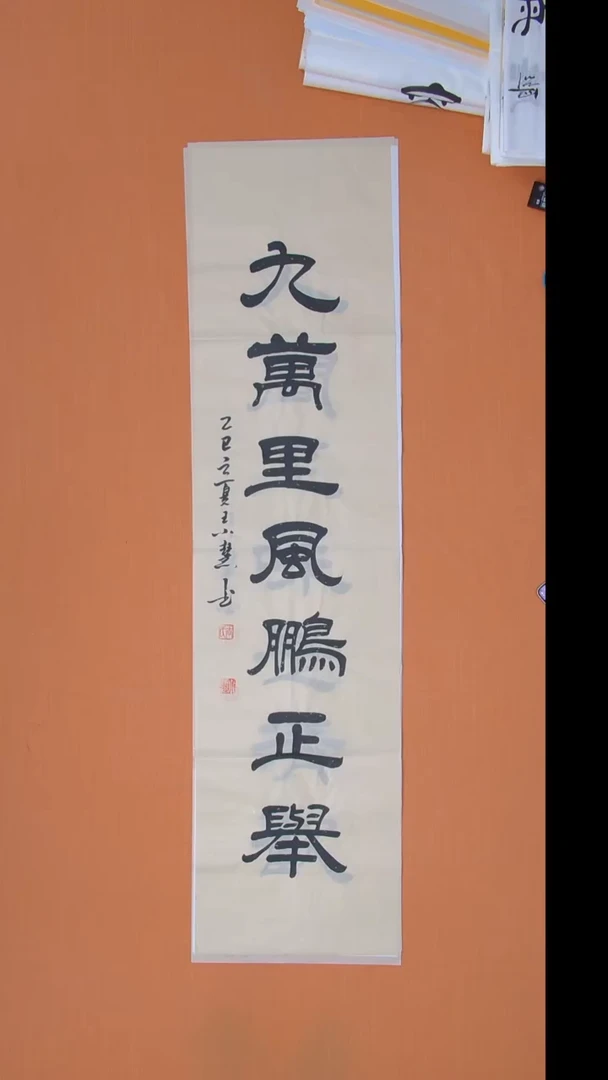 九萬里風鵬正舉
乙巳之夏王小慧書